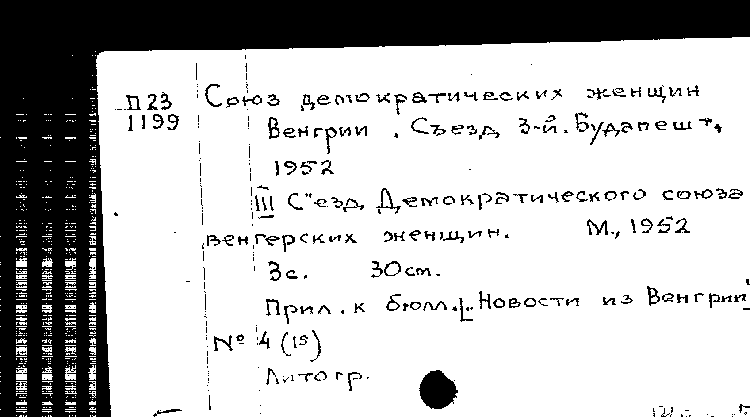 П23 Союз демократических женщин
1199 Венгрии. Съезд, 3-й. Будапешт,
1952
III С"езд Демократического союза
венгерских женщин. М., 1952
3с. 30см.
Прил. к бюлл. "Новости из Венгрии"
№ 4 (15)
Литогр.